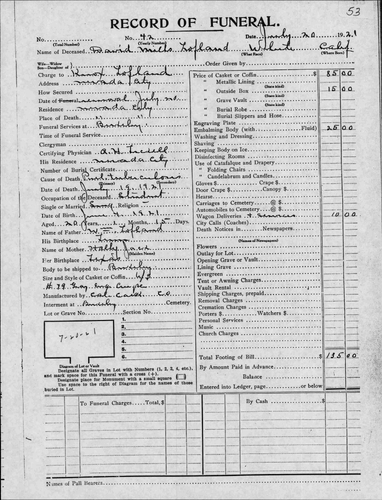 53
RECORD OF FUNERAL.
No. No. 92 Date July 20 1921
(Total Number) (Yearly Number)
Name of Deceased David Mills Lofland White Calif.
(What Race) (Where Born)
Order Given by
Charge to Knox Lofland
Address Nevada City
How Secured
Date of Funeral
Residence Nevada City
Place of Death " "
Funeral Services at
Time of Funeral Service
Clergyman
Certifying Physician
His Residence Nevada City
Number of Burial Certificate
Cause of Death
Date of Death July 19 1921
Occupation of the Deceased Student
Single or Married
Date of Birth
Aged 20 Years Months 15 Days
Name of Father Lofland
His Birthplace
Name of Mother
(Maiden Name)
Her Birthplace
Body to be Shipped to
Size and Style of Casket or Coffin
Manufactured by Cal. Cask. Co
Interment at Cemetery
Lot or Grave No. Section No.
7-20-21
1.
2.
3.
4.
5.
6.
Diagram of Lot or Vault
Designate all Graves in Lot with Numbers (1, 2, 3, 4, etc.), and mark space for this Funeral with a cross (+).
Designate place for Monument with a small square
Use space to the right of Diagram for the names of those buried in Lot.
Price of Casket or Coffin $ 85 00
Metallic Lining
(State kind)
" Outside Box 15 00
(State kind)
" Grave Vault
(State kind)
" Burial Robe
" Burial Slippers and Hose
Engraving Plate
Embalming Body (with Fluid) 25 00
Washing and Dressing
Shaving
Keeping Body on Ice
Disinfecting Rooms
Use of Catafalque and Drapery
" Folding Chairs
" Candelabrum and Candles
Gloves $ Crape $
Door Crape $ Canopy $
Hearse
Carriages to Cemetery @ $
Automobiles to Cemetery @ $
Wagon Deliveries Services 10 00
City Calls (Coaches)
Death Notices in Newspapers
(Names of Newspapers)
Flowers
Outlay for Lot
Opening Grave or Vault
Lining Grave
Evergreen
Tent or Awning Charges
Vault Rental
Shipping Charges, prepaid
Removal Charges
Cremation Charges
Porters $ Watchers $
Personal Services
Music
Church Charges
Total Footing of Bill $ 135 00
By Amount Paid in Advance
Balance
Entered into Ledger, page or below.
To Funeral Charges Total $ By Cash $
Names of Pall Bearers